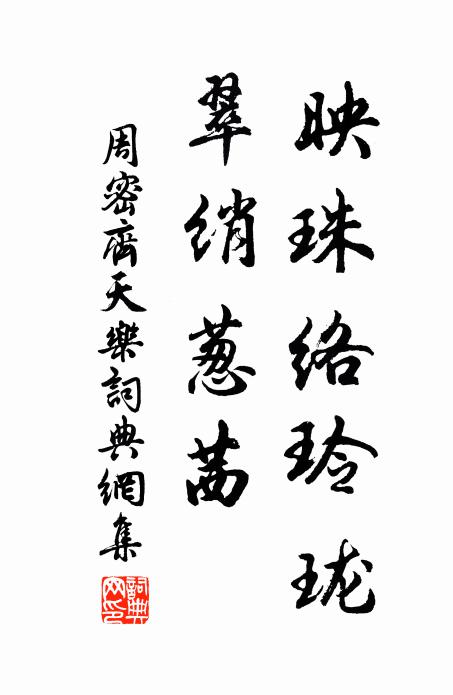 映珠络玲珑
翠绡葱茜
周密齊天樂詞典網集
詞典网印